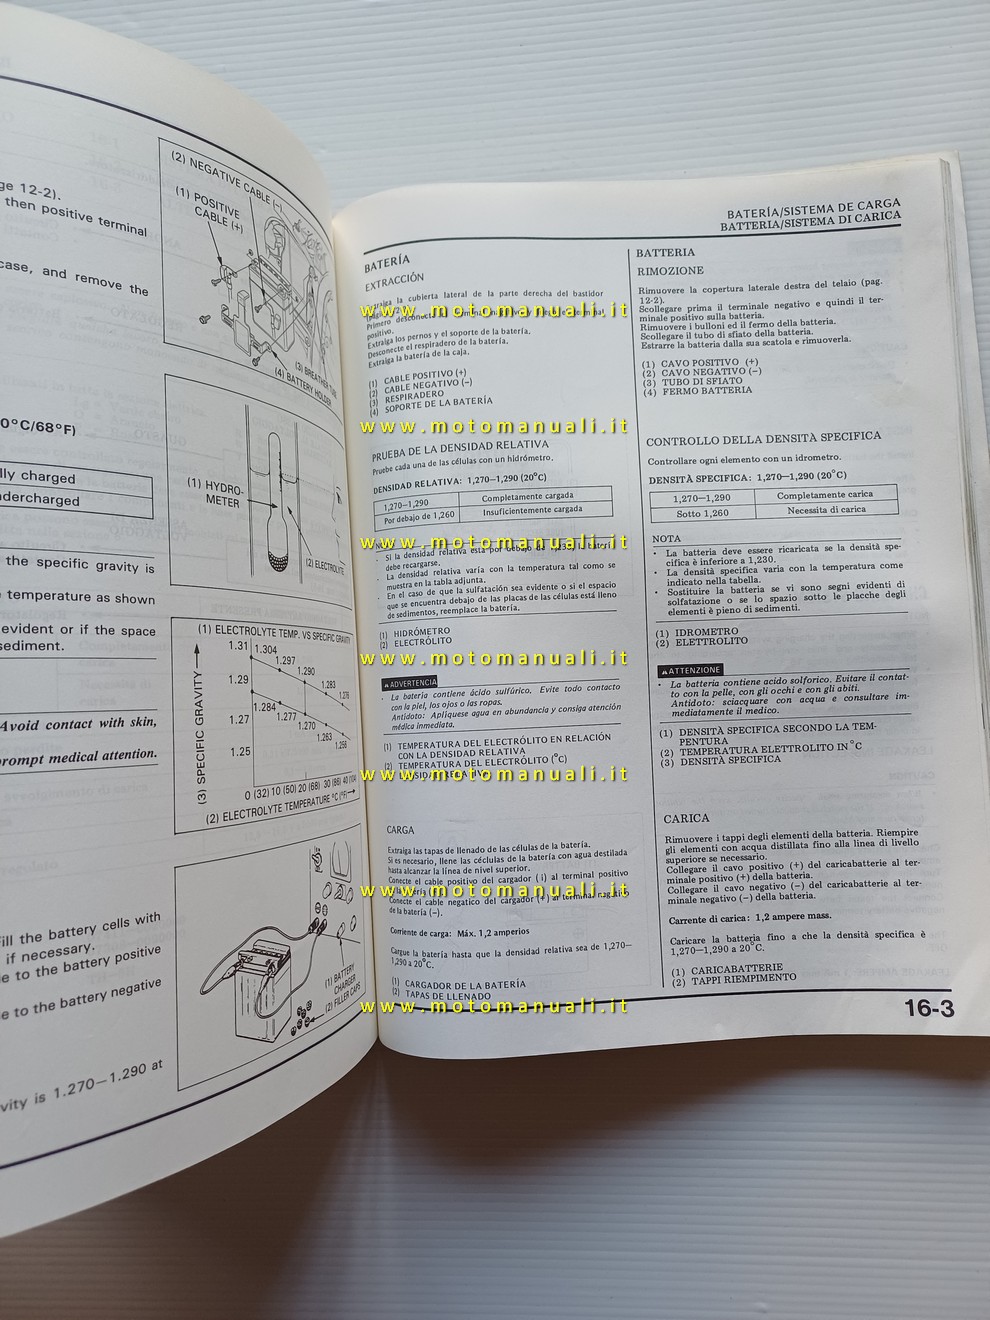 ge 12-2).
then positive terminal
case, and remove the
0°C/68°F)
lly charged
ndercharged
the specific gravity is
temperature as shown
evident or if the space
sediment.
Avoid contact with skin,
prompt medical attention.
ill the battery cells with
if necessary.
e to the battery positive
e to the battery negative
vity is 1.270—1.290 at
(2) NEGATIVE CABLE (−)
(1) POSITIVE
CABLE (+)
(3) BREATHER TUBE
(4) BATTERY HOLDER
(1) HYDRO-
METER
(2) ELECTROLYTE
(1) ELECTROLYTE TEMP. VS SPECIFIC GRAVITY
1.31
1.304
1.297
1.290
1.283
1.276
1.29
1.284
1.277
1.270
1.263
1.256
1.27
1.25
(3) SPECIFIC GRAVITY
0 (32) 10 (50) 20 (68) 30 (86) 40 (104)
(2) ELECTROLYTE TEMPERATURE °C (°F)
(1) BATTERY
CHARGER
(2) FILLER CAPS
BATERÍA/SISTEMA DE CARGA
BATTERIA/SISTEMA DI CARICA
BATERÍA
EXTRACCIÓN
Extraiga la cubierta lateral de la parte derecha del bastidor
www.motomanuali.it
Primero
positivo.
Extraiga los pernos y el soporte de la batería.
Desconecte el respiradero de la batería.
Extraiga la batería de la caja.
(1) CABLE POSITIVO (+)
(2) CABLE NEGATIVO (−)
(3) RESPIRADERO
(4) SOPORTE DE LA BATERÍA
www.motomanuali.it
PRUEBA DE LA DENSIDAD RELATIVA
Pruebe cada una de las células con un hidrómetro.
DENSIDAD RELATIVA: 1,270—1,290 (20°C)
1,270—1,290 Completamente cargada
Por debajo de 1,260 Insuficientemente cargada
www.motomanuali.it
· Si la densidad relativa está por debajo de la batería
debe recargarse.
· La densidad relativa varía con la temperatura tal como se
muestra en la tabla adjunta.
· En el caso de que la sulfatación sea evidente o si el espacio
que se encuentra debajo de las placas de las células está lleno
de sedimentos, reemplace la batería.
(1) HIDRÓMETRO
(2) ELECTRÓLITO
www.motomanuali.it
ADVERTENCIA
· La batería contiene ácido sulfúrico. Evite todo contacto
con la piel, los ojos o las ropas.
Antídoto: Aplíquese agua en abundancia y consiga atención
médica inmediata.
(1) TEMPERATURA DEL ELECTRÓLITO EN RELACIÓN
CON LA DENSIDAD RELATIVA
(2) TEMPERATURA DEL ELECTRÓLITO (°C)
www.motomanuali.it
CARGA
Extraiga las tapas de llenado de las células de la batería.
Si es necesario, llene las células de la batería con agua destilada
hasta alcanzar la línea de nivel superior.
Conecte el cable positivo del cargador (+) al terminal positivo
www.motomanuali.it
Conecte el cable negatico del cargador (+) al terminal negativo
de la batería (−).
Corriente de carga: Máx. 1,2 amperios
Cargue la batería hasta que la densidad relativa sea de 1,270—
1,290 a 20°C.
(1) CARGADOR DE LA BATERÍA
(2) TAPAS DE LLENADO
www.motomanuali.it
BATTERIA
RIMOZIONE
Rimuovere la copertura laterale destra del telaio (pag.
12-2).
Scollegare prima il terminale negativo e quindi il ter-
minale positivo sulla batteria.
Rimuovere i bulloni ed il fermo della batteria.
Scollegare il tubo di sfiato della batteria.
Estrarre la batteria dalla sua scatola e rimuoverla.
(1) CAVO POSITIVO (+)
(2) CAVO NEGATIVO (−)
(3) TUBO DI SFIATO
(4) FERMO BATTERIA
CONTROLLO DELLA DENSITÀ SPECIFICA
Controllare ogni elemento con un idrometro.
DENSITÀ SPECIFICA: 1,270—1,290 (20°C)
1,270—1,290 Completamente carica
Sotto 1,260 Necessita di carica
NOTA
· La batteria deve essere ricaricata se la densità spe-
cifica è inferiore a 1,230.
· La densità specifica varia con la temperatura come
indicato nella tabella.
· Sostituire la batteria se vi sono segni evidenti di
solfatazione o se lo spazio sotto le placche degli
elementi è pieno di sedimenti.
(1) IDROMETRO
(2) ELETTROLITO
ATTENZIONE
· La batteria contiene acido solforico. Evitare il contat-
to con la pelle, con gli occhi e con gli abiti.
Antidoto: sciacquare con acqua e consultare im-
mediatamente il medico.
(1) DENSITÀ SPECIFICA SECONDO LA TEM-
PENTURA
(2) TEMPERATURA ELETTROLITO IN °C
(3) DENSITÀ SPECIFICA
CARICA
Rimuovere i tappi degli elementi della batteria. Riempire
gli elementi con acqua distillata fino alla linea di livello
superiore se necessario.
Collegare il cavo positivo (+) del caricabatterie al ter-
minale positivo (+) della batteria.
Collegare il cavo negativo (−) del caricabatterie al ter-
minale negativo (−) della batteria.
Carrente di carica: 1,2 ampere mass.
Caricare la batteria fino a che la densità specifica è
1,270—1,290 a 20°C.
(1) CARICABATTERIE
(2) TAPPI RIEMPIMENTO
16-3